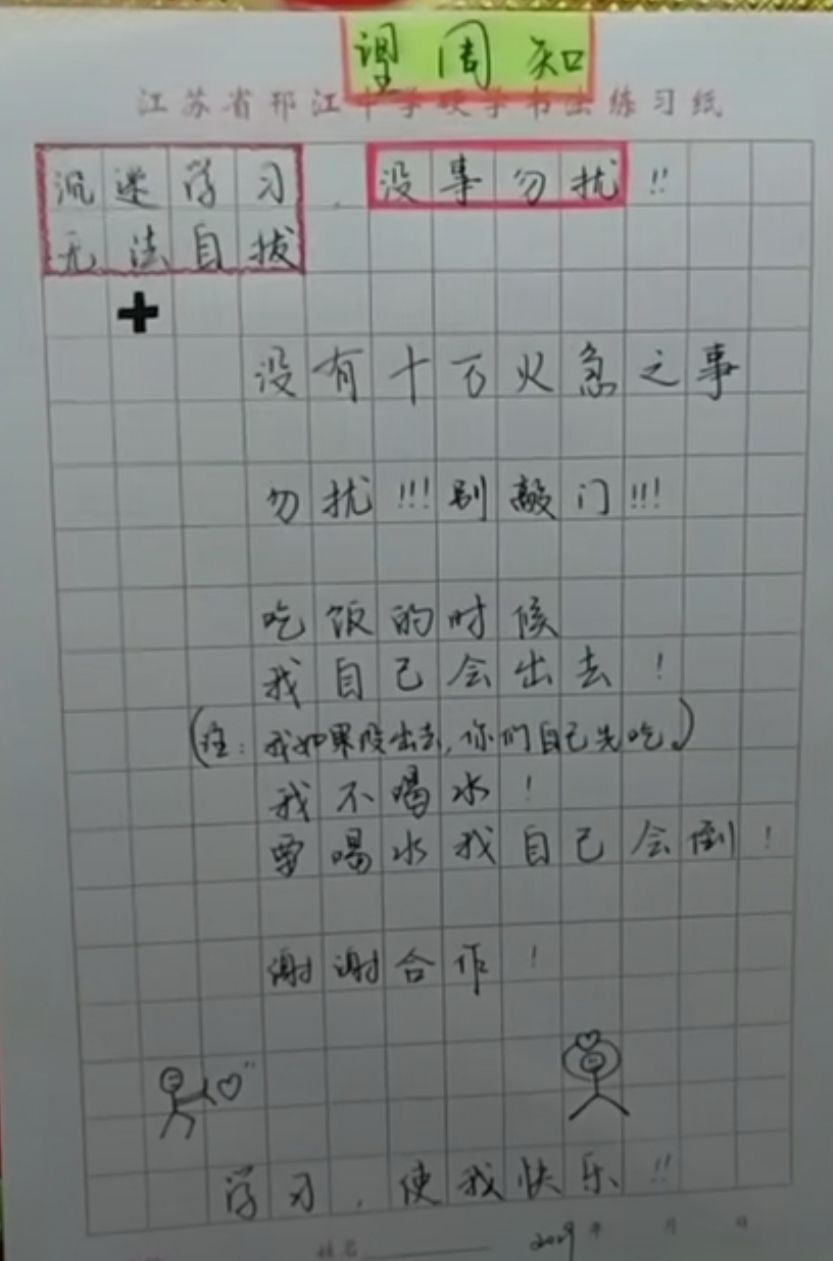 望周知
江苏省邗江中学硬笔书法练习纸
沉迷学习，没事勿扰!!
无法自拔
+
没有十万火急之事
勿扰!!!别敲门!!!
吃饭的时候
我自己会出去!
(注:我如果没出去,你们自己先吃。)
我不喝水!
要喝水我自己会倒!
谢谢合作!
学习,使我快乐!!
姓名 年 月 日